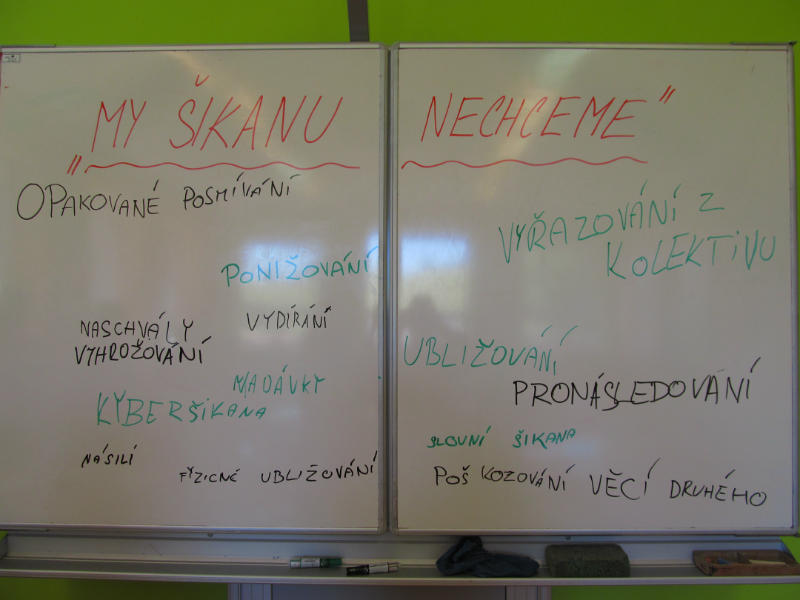 „MY ŠIKANU NECHCEME"
OPAKOVANÉ POSMÍVÁNÍ
PONIŽOVÁNÍ
VYDÍRÁNÍ
NASCHVÁLY
VYHROŽOVÁNÍ
NADÁVKY
KYBERŠIKANA
NÁSILÍ
FYZICNÉ UBLIŽOVÁNÍ
VYŘAZOVÁNÍ Z
KOLEKTIVU
UBLIŽOVÁNÍ
PRONÁSLEDOVÁNÍ
SLOVNÍ ŠIKANA
POŠKOZOVÁNÍ VĚCÍ DRUHÉHO